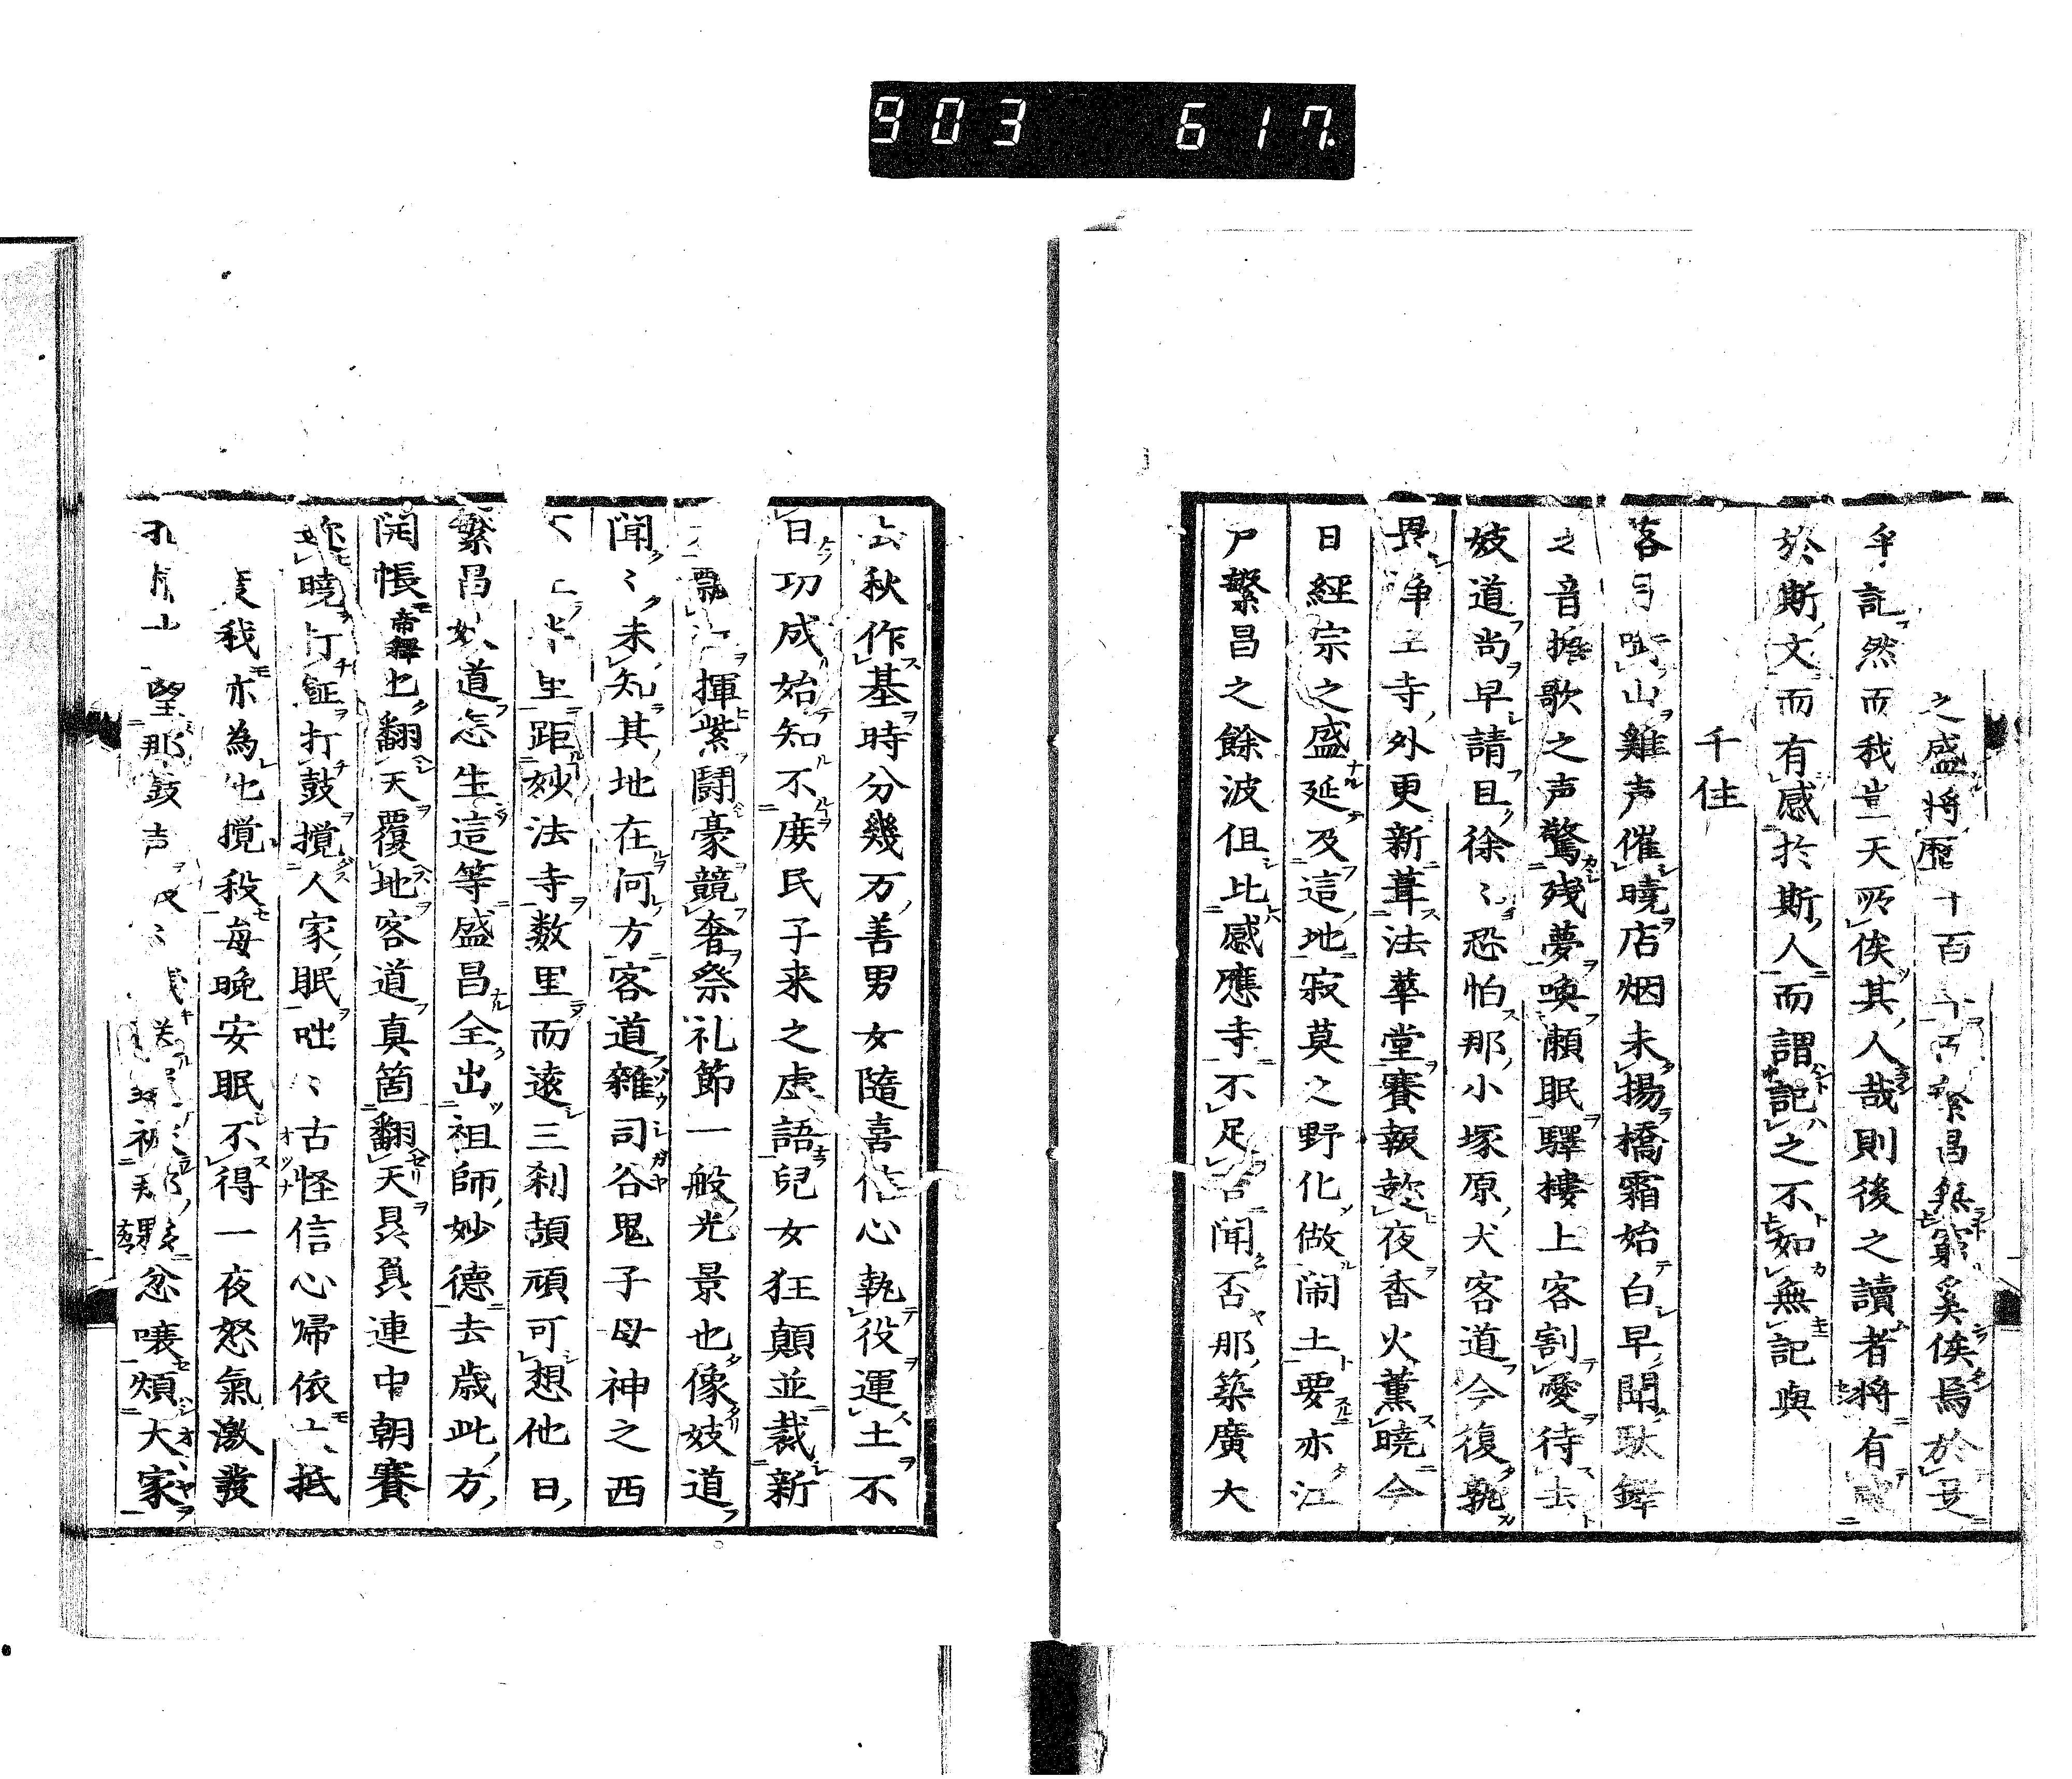 903 617.
之盛将歴十百 繁昌無窮奚俟焉於是
記然而我豈天所俟其人哉則後之讀者将有感
於斯文而有感於斯人而謂記之不如無記與
千住
落月 山雞声催曉店烟未揚橋霜始白早聞馱鐸
之音擔歌之声驚残夢喚頼眠驛樓上客割愛待去
妓道尚早請且徐〻恐怕那小塚原犬客道今復孰
畏浄土寺外更新葺法華堂賽報趁夜香火薫曉今
日経宗之盛延及這地寂莫之野化做閙土要亦江
戸繁昌之餘波但比感應寺不足言聞否那築廣大
去秋作基時分幾万善男女隨喜信心執役運土不
日功成始知不庻民子来之虚語兒女狂顛並裁新
飄 揮紫闘豪競奢祭礼節一般光景也像妓道
聞〻未知其地在何方客道雜司谷鬼子母神之西
里距妙法寺数里而遠三刹頡頑可想他日
繁昌妓道怎生這等盛昌全出祖師妙德去歳此方
開帳帝釋也翻天覆地客道真箇翻天具員連中朝賽
曉打鉦打鼓攪人家眠咄〻古怪信心帰依 抵
我亦為他攪殺毎晩安眠不得一夜怒氣激發
望那鼓声 忿嚷煩大家